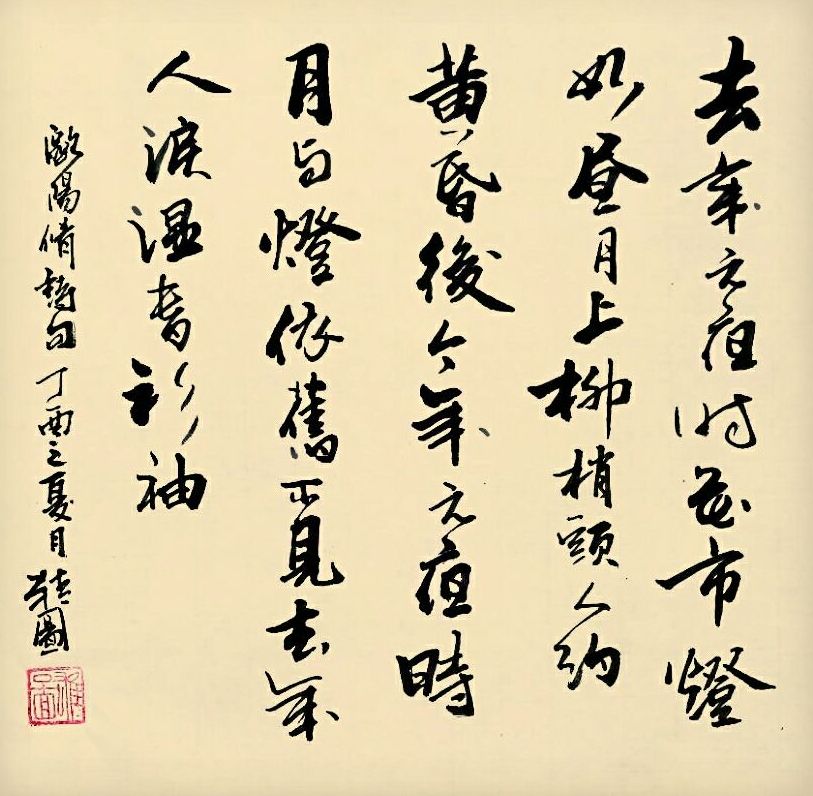 去年元夜時花市燈
如昼月上柳梢頭人約
黄昏後今年元夜時
月与燈依舊不見去年
人淚湿春衫袖
歐陽脩詩句丁酉之夏月圖